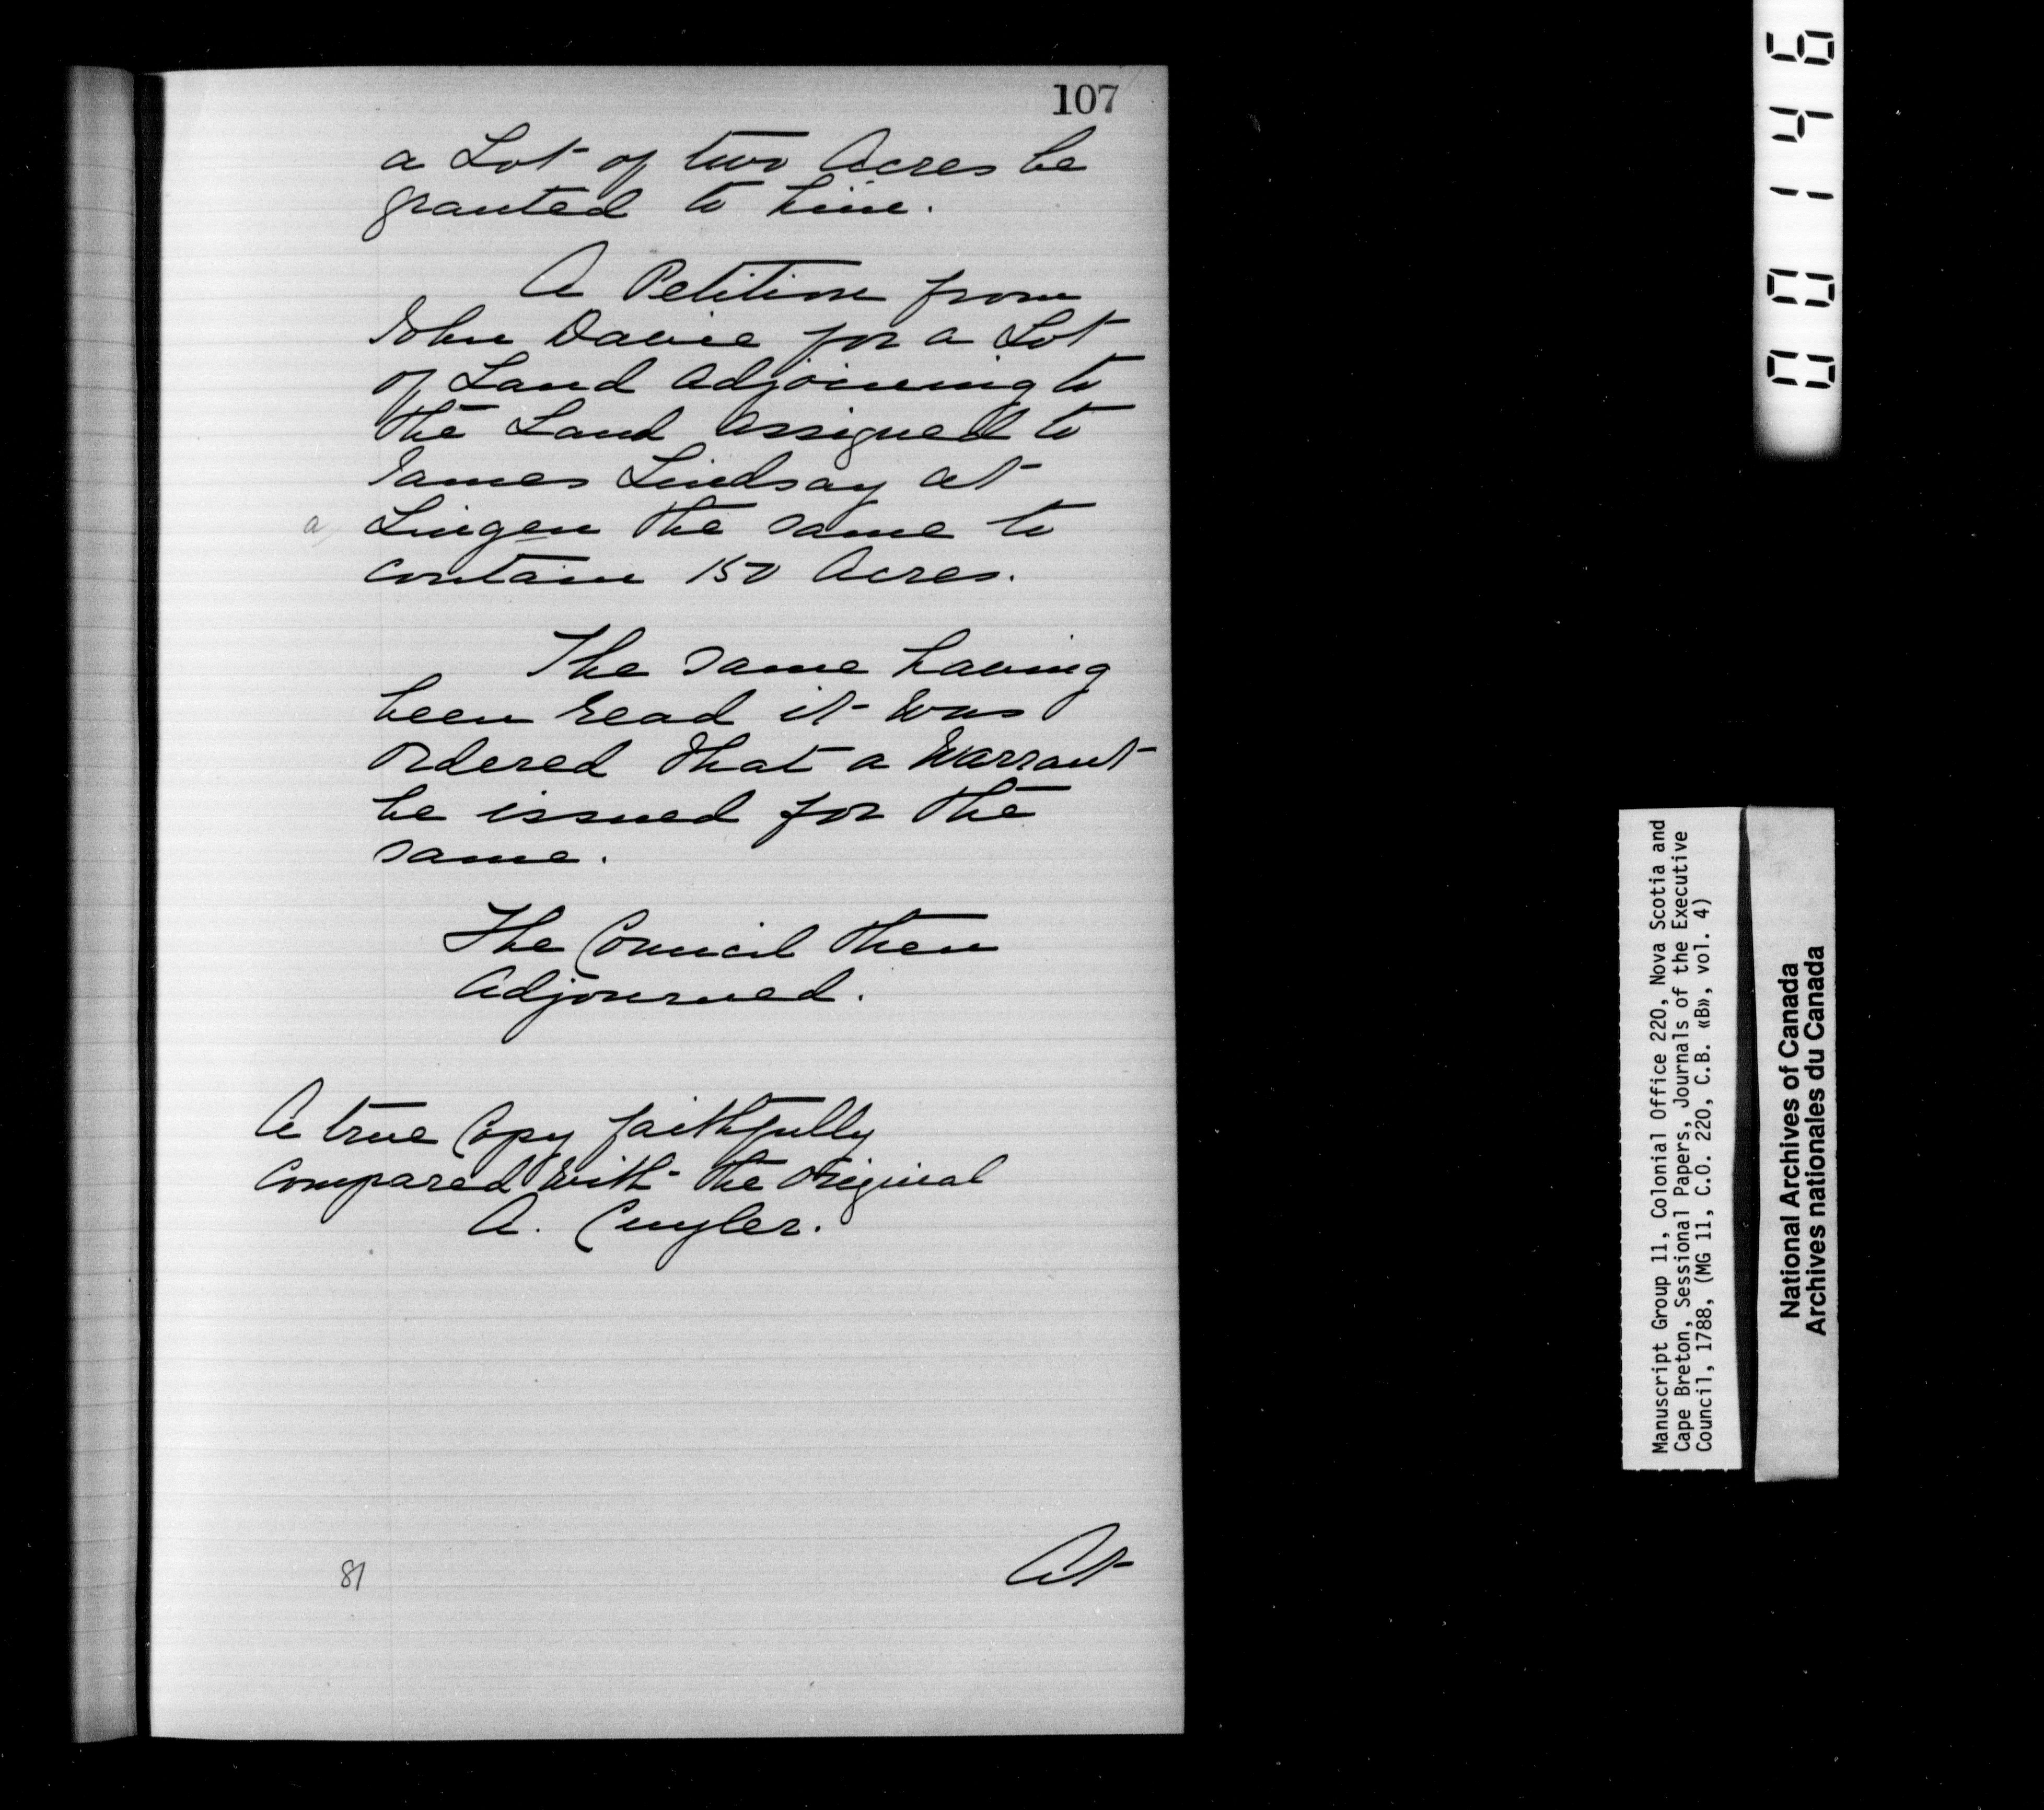 107
a Lot of two Acres be
granted to him.
A Petition from
John Davie for a Lot
of Land adjoining to
the Land assigned to
James Lindsay at
a Lingen the same to
contain 150 Acres.
The same having
been read it was
ordered that a Warrant
be issued for the
same.
The Council then
adjourned.
A true Copy faithfully
compared with the original
A. Cuyler.
81
At
00146
Manuscript Group 11, Colonial Office 220, Nova Scotia and
Cape Breton, Sessional Papers, Journals of the Executive
Council, 1788, (MG 11, C.O. 220, C.B. «B», vol. 4)
National Archives of Canada
Archives nationales du Canada